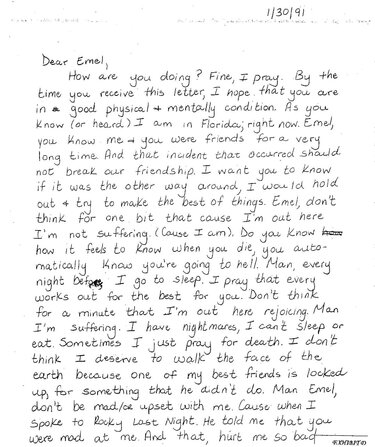 1/30/91
Dear Emel,
How are you doing? Fine, I pray. By the
time you receive this letter, I hope that you are
in a good physical + mentally condition. As you
know (or heard) I am in Florida; right now. Emel,
you know me + you were friends for a very
long time. And that incident that occurred should
not break our friendship. I want you to know
if it was the other way around, I would hold
out + try to make the best of things. Emel, don't
think for one bit that cause I'm out here
I'm not suffering. (Cause I am). Do you know
how it feels to know when you die, you auto-
matically know you're going to hell. Man, every
night before I go to sleep. I pray that every
works out for the best for you. Don't think
for a minute that I'm out here rejoicing. Man
I'm suffering. I have nightmares, I can't sleep or
eat. Sometimes I just pray for death. I don't
think I deserve to walk the face of the
earth because one of my best friends is locked
up, for something that he didn't do. Man Emel,
don't be mad/or upset with me. Cause when I
spoke to Rocky Last Night. He told me that you
were mad at me. And that, hurt me so bad